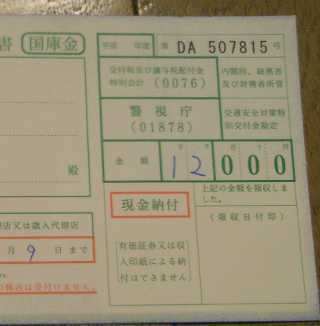 書 国庫金
平成 年度 第 DA 507815 号
交付税及び譲与税配付金
特別会計 (0076)
内閣府、総務省
及び財務省所管
警視庁
(01878)
交通安全対策特
別交付金勘定
金額 12000
殿
上記の金額を領収しま
した。
現金納付
(領収日付印)
店又は歳入代理店
月 9 日まで
(有価証券又は収
入印紙による納
付はできません)
は受付けません。